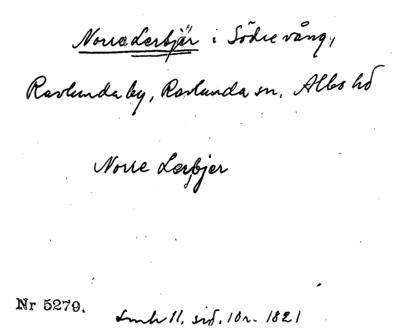 Norra Lerbjär i Södre vång,
Ravlunda by, Ravlunda sn, Albo hd
Norre Lerbjer
Nr 5279.
11, sid. 10 r. 1821